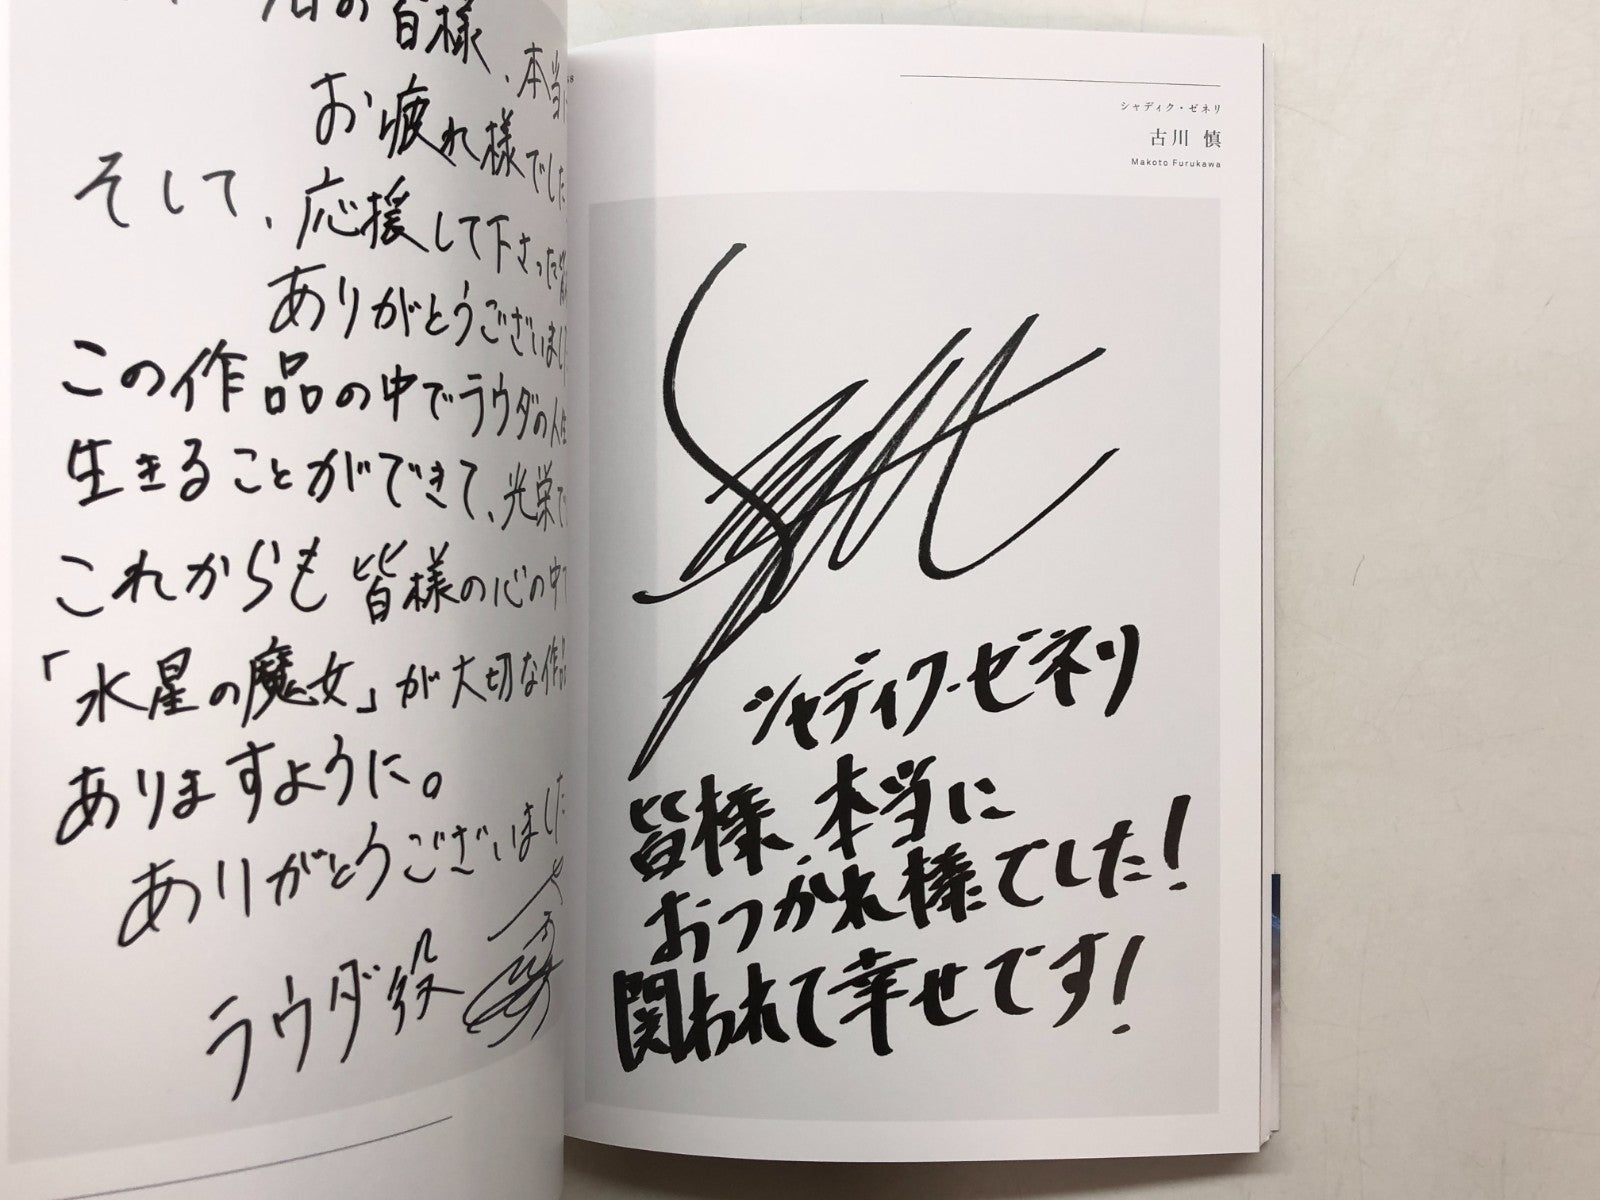 の皆様、本当
お疲れ様でした
そして、応援して下さった皆
ありがとうございまし
この作品の中でラウダの人生
生きることができて、光栄で
これからも皆様の心の中で
「水星の魔女」が大切な作品
ありますように。
ありがとうございました
ラウダ役
シャディク・ゼネリ
古川 慎
Makoto Furukawa
シャディク・ゼネリ
皆様、本当に
おつかれ様でした!
関われて幸せです!